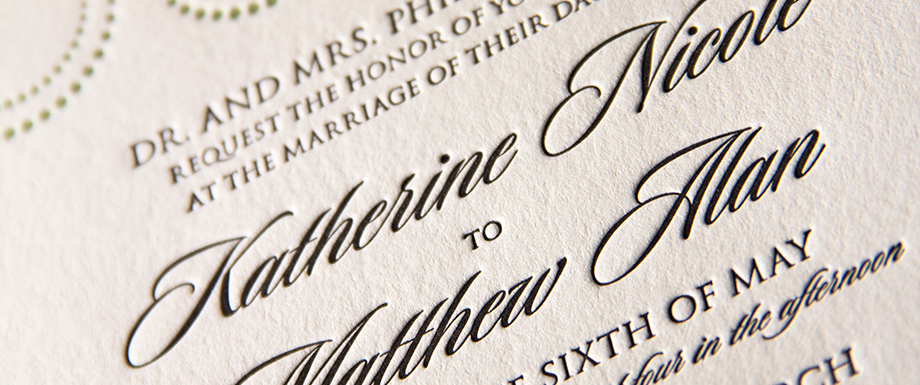 DR. AND MRS. PHI
REQUEST THE HONOR OF YO
AT THE MARRIAGE OF THEIR DA
Katherine Nicole
TO
Matthew Alan
SIXTH OF MAY
four in the afternoon